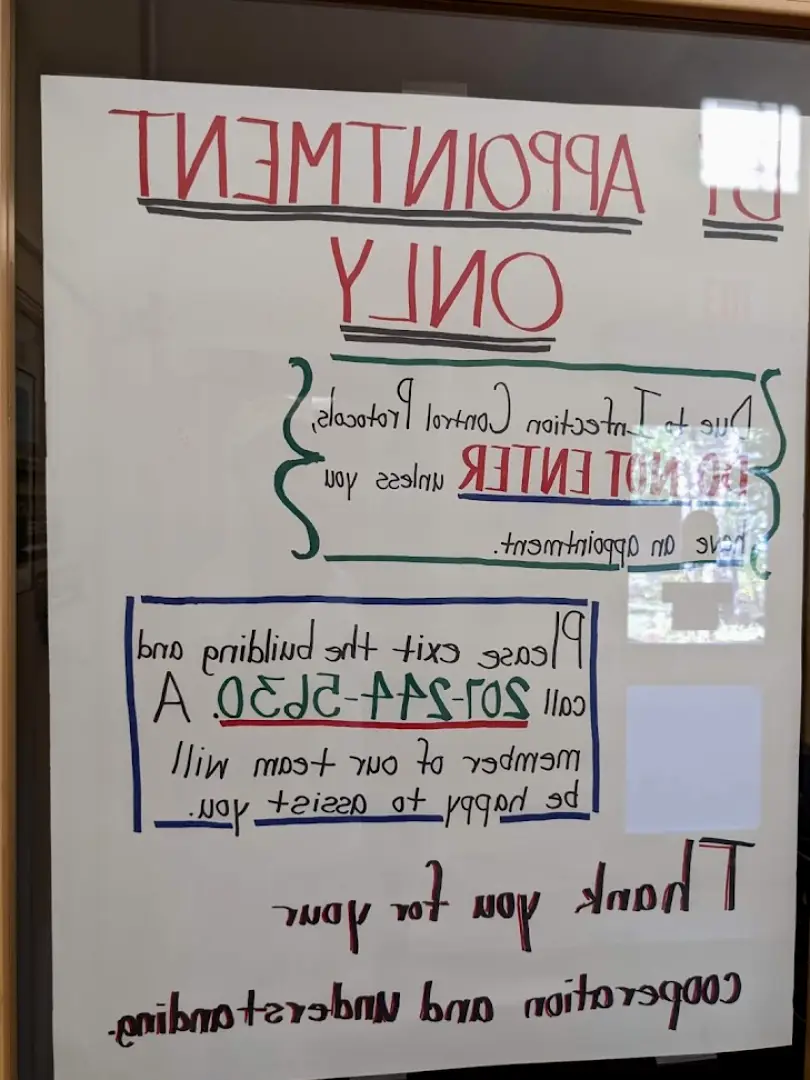 BY APPOINTMENT
ONLY
Due to Infection Control Protocols,
DO NOT ENTER unless you
have an appointment.
Please exit the building and
call 207-244-5630. A
member of our team will
be happy to assist you.
Thank you for your
cooperation and understanding.